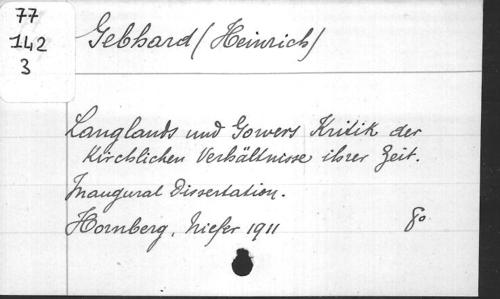 77
142
3
Gebhard (Heinrich)
Langlands und Gowers Kritik der
kirchlichen Verhältnisse ihrer Zeit.
Inaugural Dissertation.
Hornberg, Kiefer 1911 8o